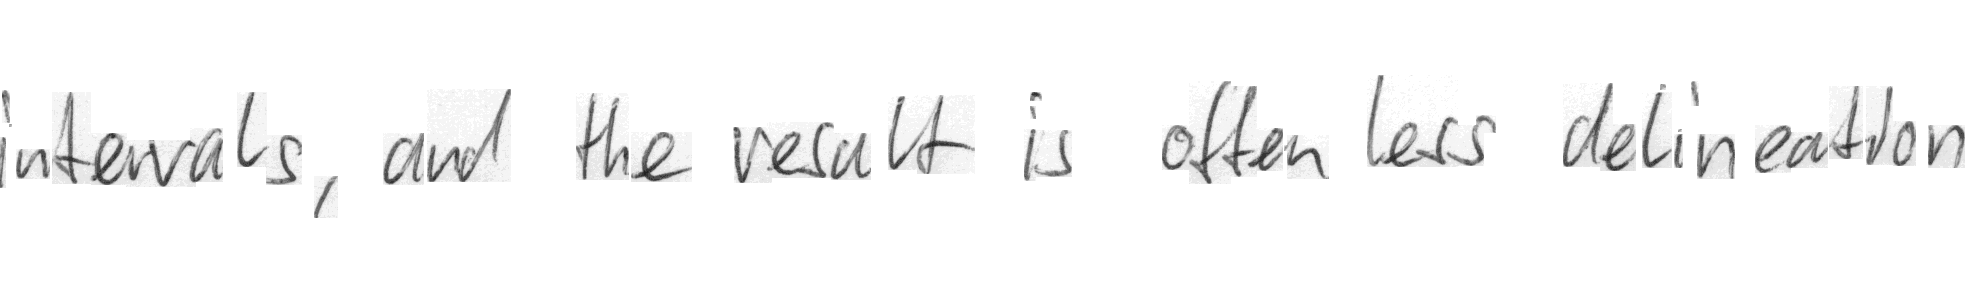 intervals, and the result is often less delineation